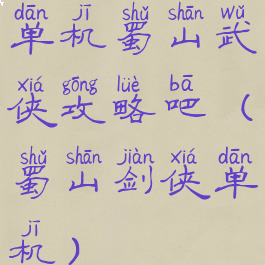 dān jī shǔ shān wǔ
单机蜀山武
xiá gōng lüè bā
侠攻略吧（
shǔ shān jiàn xiá dān
蜀山剑侠单
jī
机）